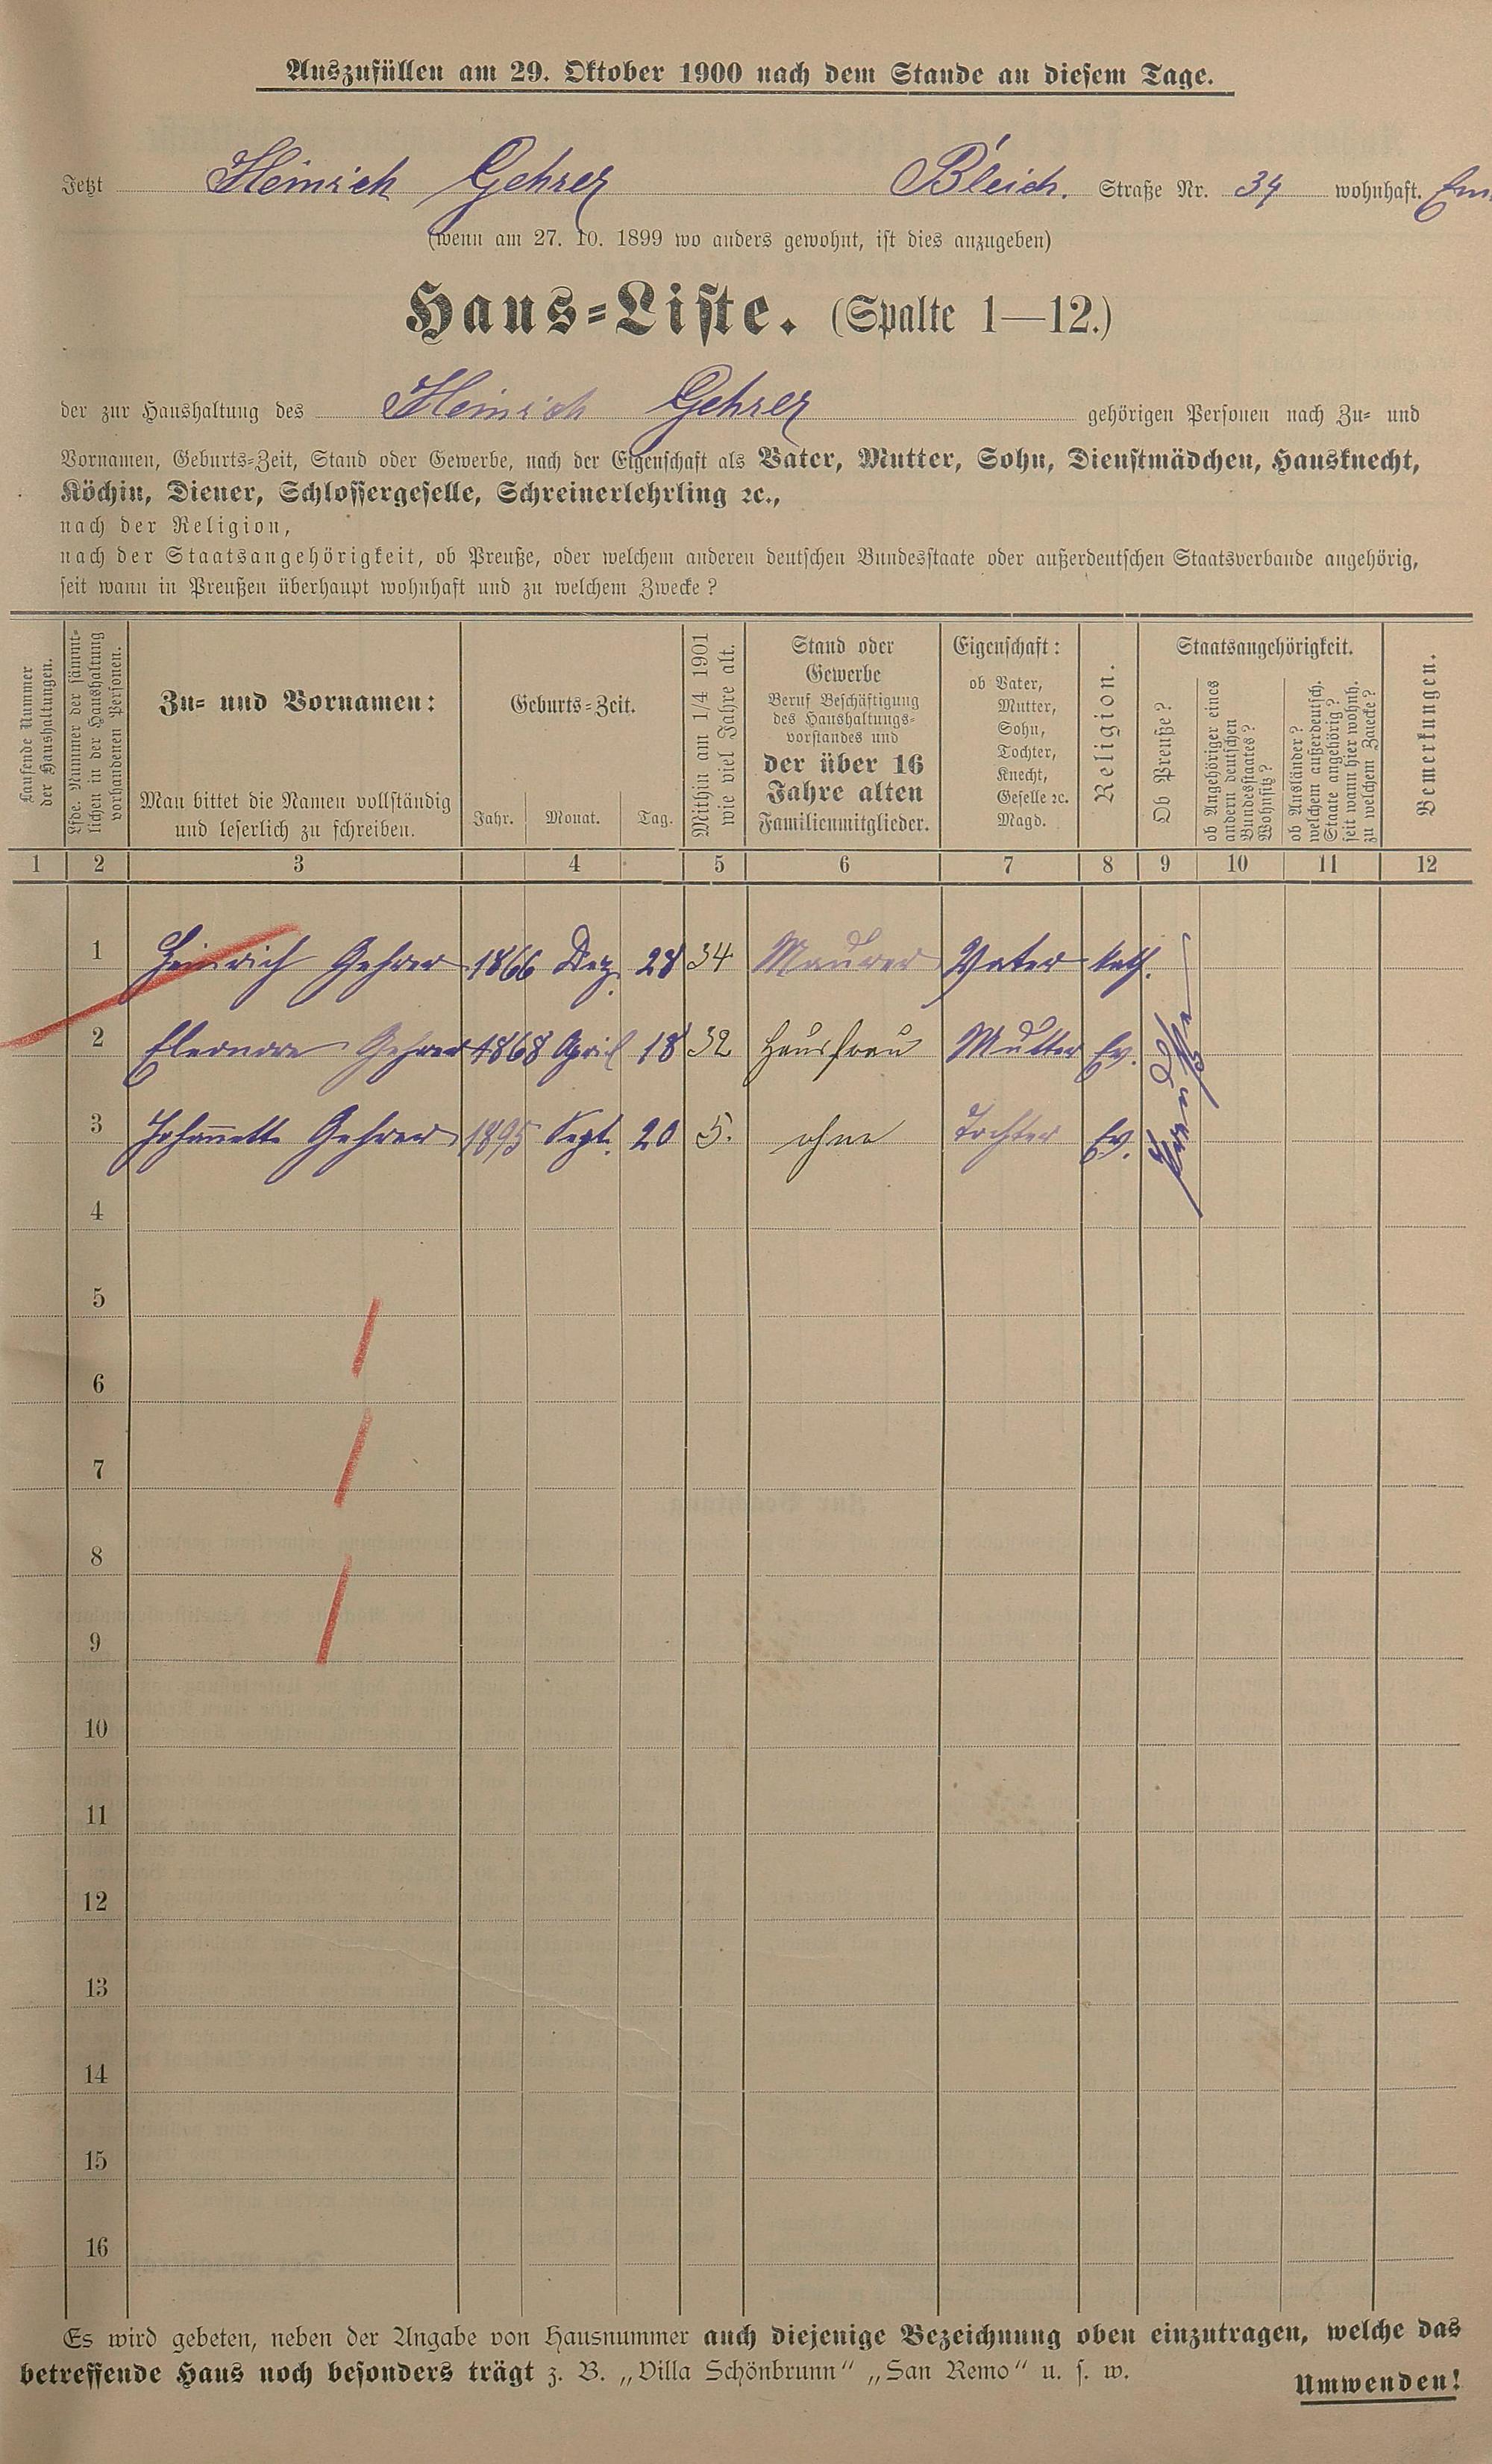 Auszufüllen am 29. Oktober 1900 nach dem Stande an diesem Tage.
Jetzt Heinrich Gehrer Bleich. Straße Nr. 34 wohnhaft.
(wenn am 27. 10. 1899 wo anders gewohnt, ist dies anzugeben)
Haus=Liste. (Spalte 1—12.)
der zur Haushaltung des Heinrich Gehrer gehörigen Personen nach Zu= und
Vornamen, Geburts=Zeit, Stand oder Gewerbe, nach der Eigenschaft als Vater, Mutter, Sohn, Dienstmädchen, Hausknecht,
Köchin, Diener, Schlossergeselle, Schreinerlehrling ꝛc.,
nach der Religion,
nach der Staatsangehörigkeit, ob Preuße, oder welchem anderen deutschen Bundesstaate oder außerdeutschen Staatsverbande angehörig,
seit wann in Preußen überhaupt wohnhaft und zu welchem Zwecke?
Laufende Nummer
der Haushaltungen.
Lfde. Nummer der sämmt=
lichen in der Haushaltung
vorhandenen Personen.
Zu= und Vornamen:
Man bittet die Namen vollständig
und leserlich zu schreiben.
Geburts=Zeit.
Jahr. Monat. Tag.
Mithin am 1/4 1901
wie viel Jahre alt.
Stand oder
Gewerbe
Beruf Beschäftigung
des Haushaltungs=
vorstandes und
der über 16
Jahre alten
Familienmitglieder.
Eigenschaft:
ob Vater,
Mutter,
Sohn,
Tochter,
Knecht,
Geselle ꝛc.
Magd.
Religion.
Staatsangehörigkeit.
Ob Preuße?
ob Angehöriger eines
andern deutschen
Bundesstaates?
Wohnsitz?
ob Ausländer?
welchem außerdeutsch.
Staate angehörig?
seit wann hier wohnh.
zu welchem Zwecke?
Bemerkungen.
1 2 3 4 5 6 7 8 9 10 11 12
1 Heinrich Gehrer 1866 Dez. 28 34 Maurer Vater kath.
2 Eleonore Gehrer 1868 April 18 32 Hausfrau Mutter Ev.
3 Johannette Gehrer 1895 Sept. 20 5. ohne Tochter Ev.
Preuße
4
5
6
7
8
9
10
11
12
13
14
15
16
Es wird gebeten, neben der Angabe von Hausnummer auch diejenige Bezeichnung oben einzutragen, welche das
betreffende Haus noch besonders trägt z. B. „Villa Schönbrunn“ „San Remo“ u. s. w.
Umwenden!